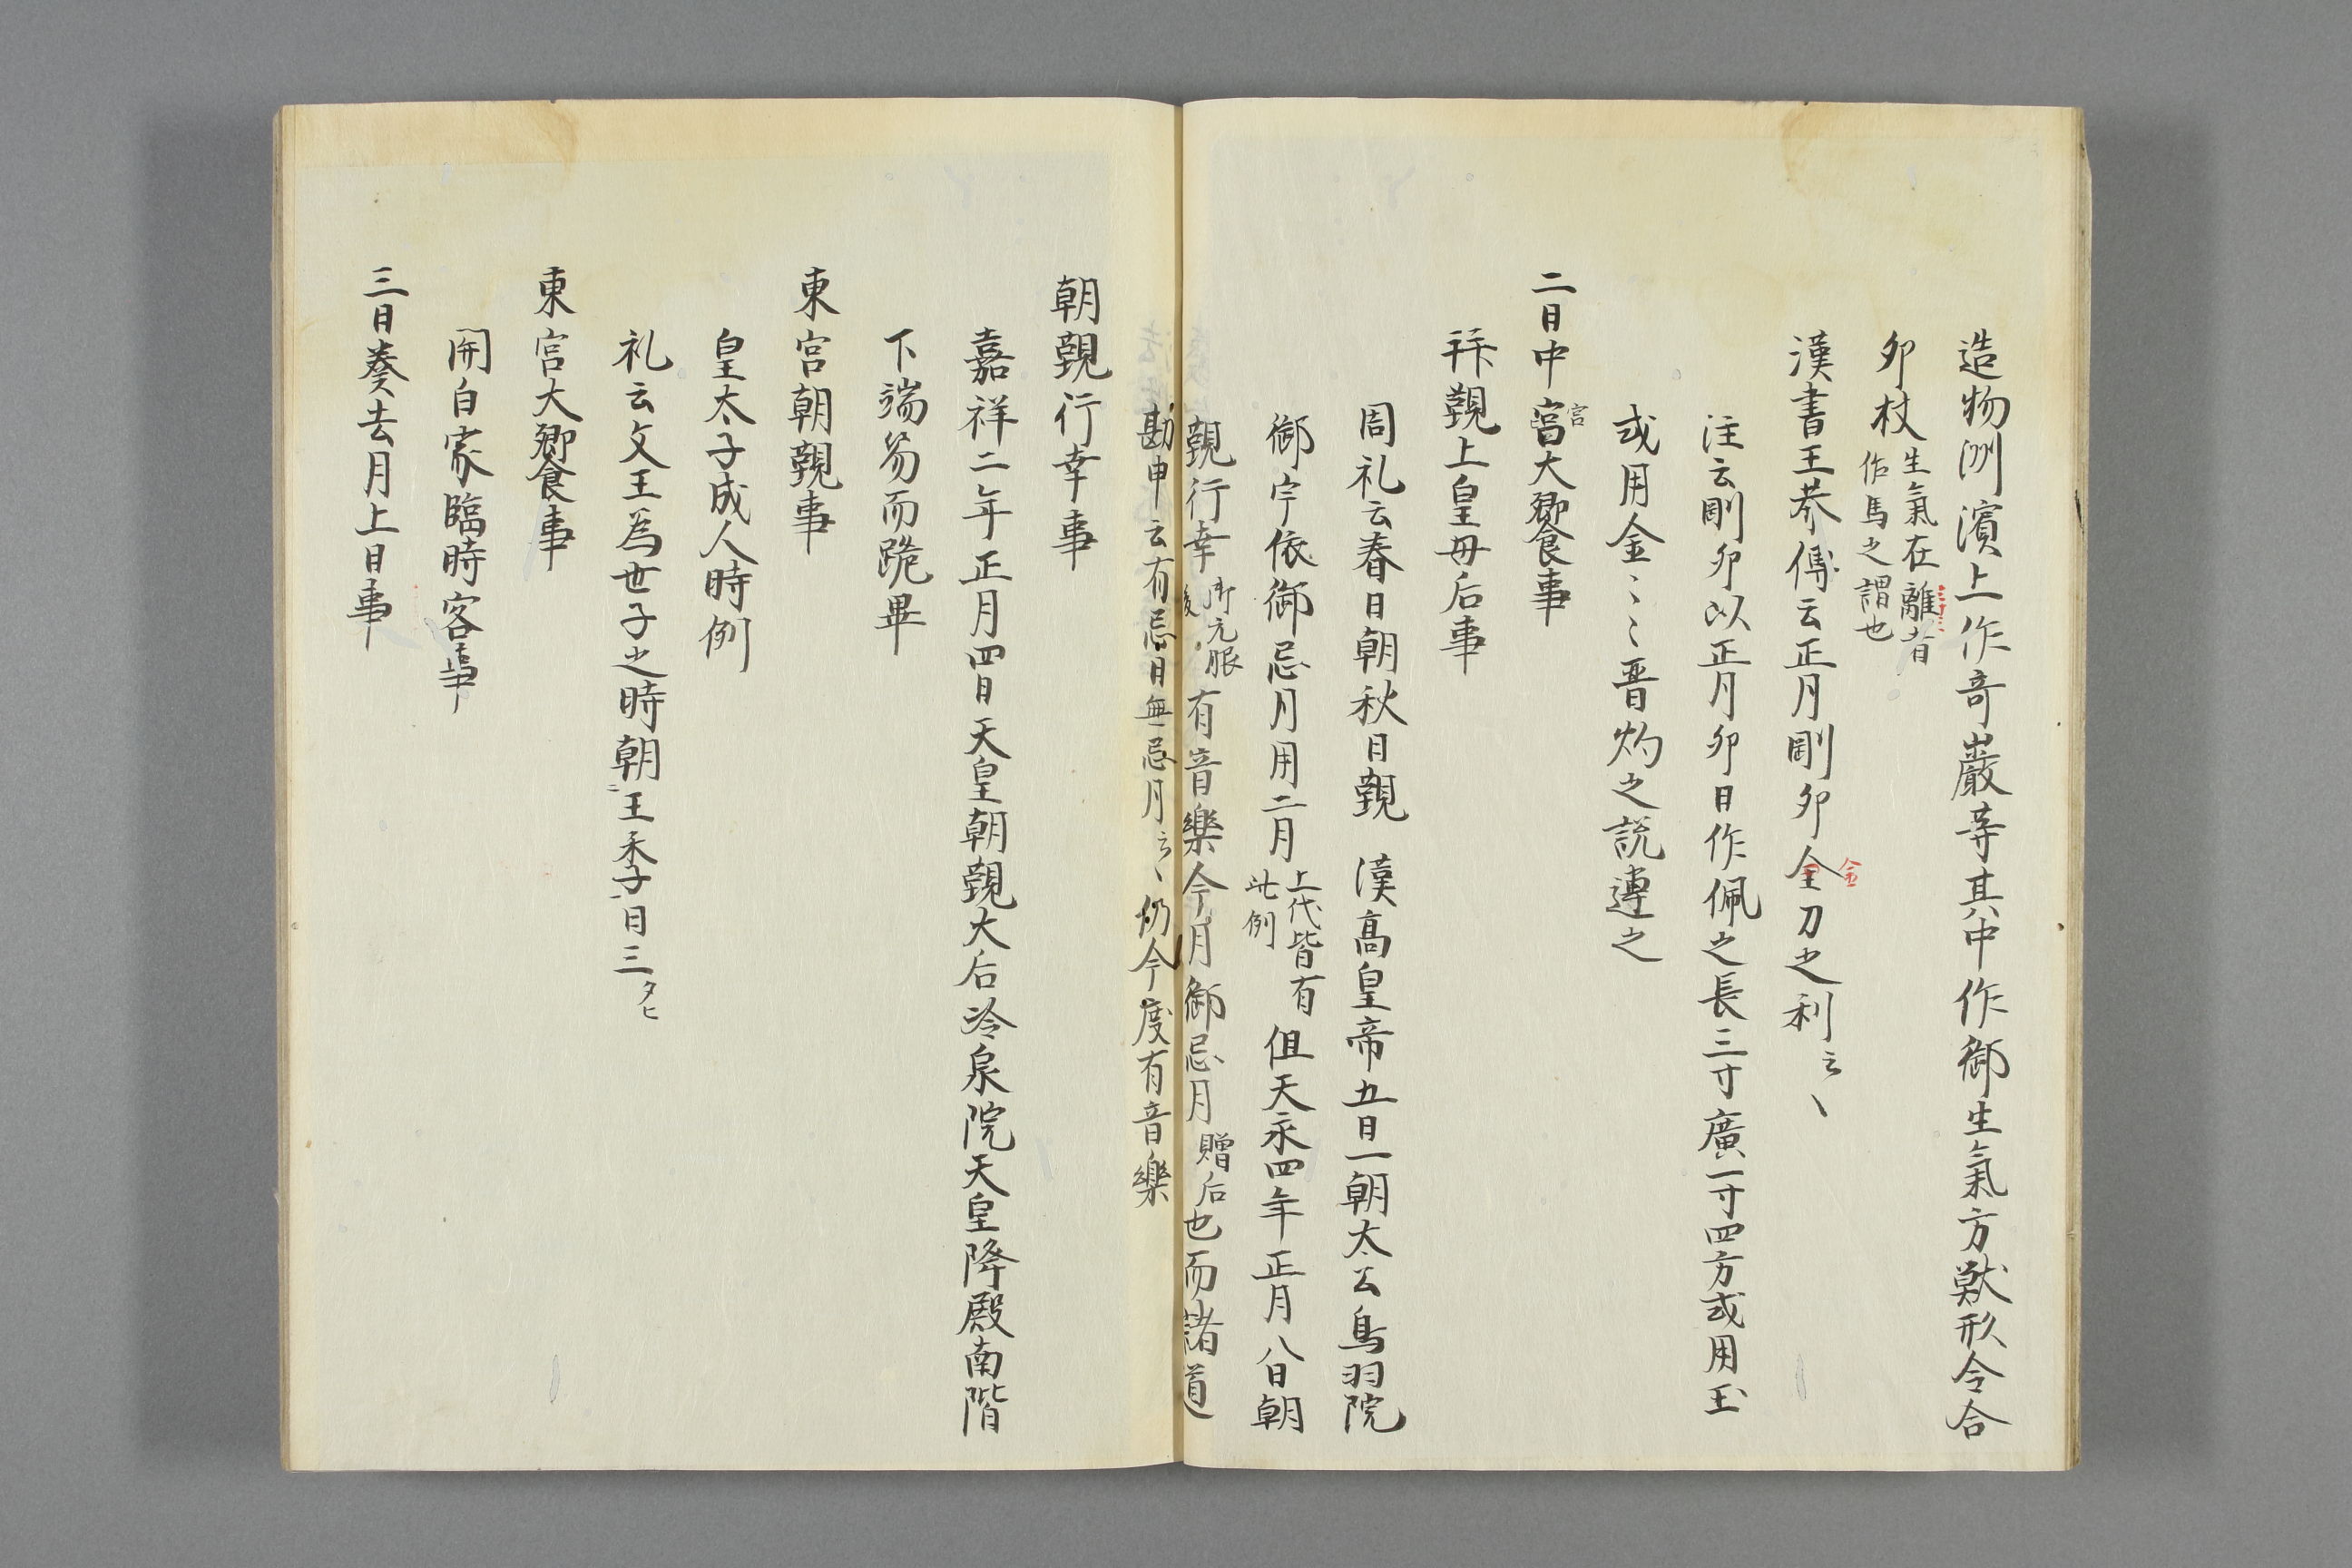 造物洲濱上作奇巖等其中作御生氣方獣形令合
卯杖
生氣在離者
作馬之謂也
漢書王莽傳云正月剛卯金刀之利云〻
金
注云剛卯以正月卯日作佩之長三寸廣一寸四方或用玉
或用金〻〻晋灼之説連之
二日中宮大饗事
宮
拜覲上皇母后事
周礼云春日朝秋日覲　漢高皇帝五日一朝太公鳥羽院
御宇依御忌月用二月
上代皆有
此例
但天永四年正月八日朝
覲行幸
御元服
後
有音樂今月御忌月
贈后
也而諸道
勘申云有忌日無忌月云〻仍今度有音樂
朝覲行幸事
嘉祥二年正月四日天皇朝覲大后冷泉院天皇降殿南階
下端笏而跪畢
東宮朝覲事
皇太子成人時例
礼云文王為世子之時朝王季日三
タヒ
東宮大饗事
関白家臨時客事
三日奏去月上日事